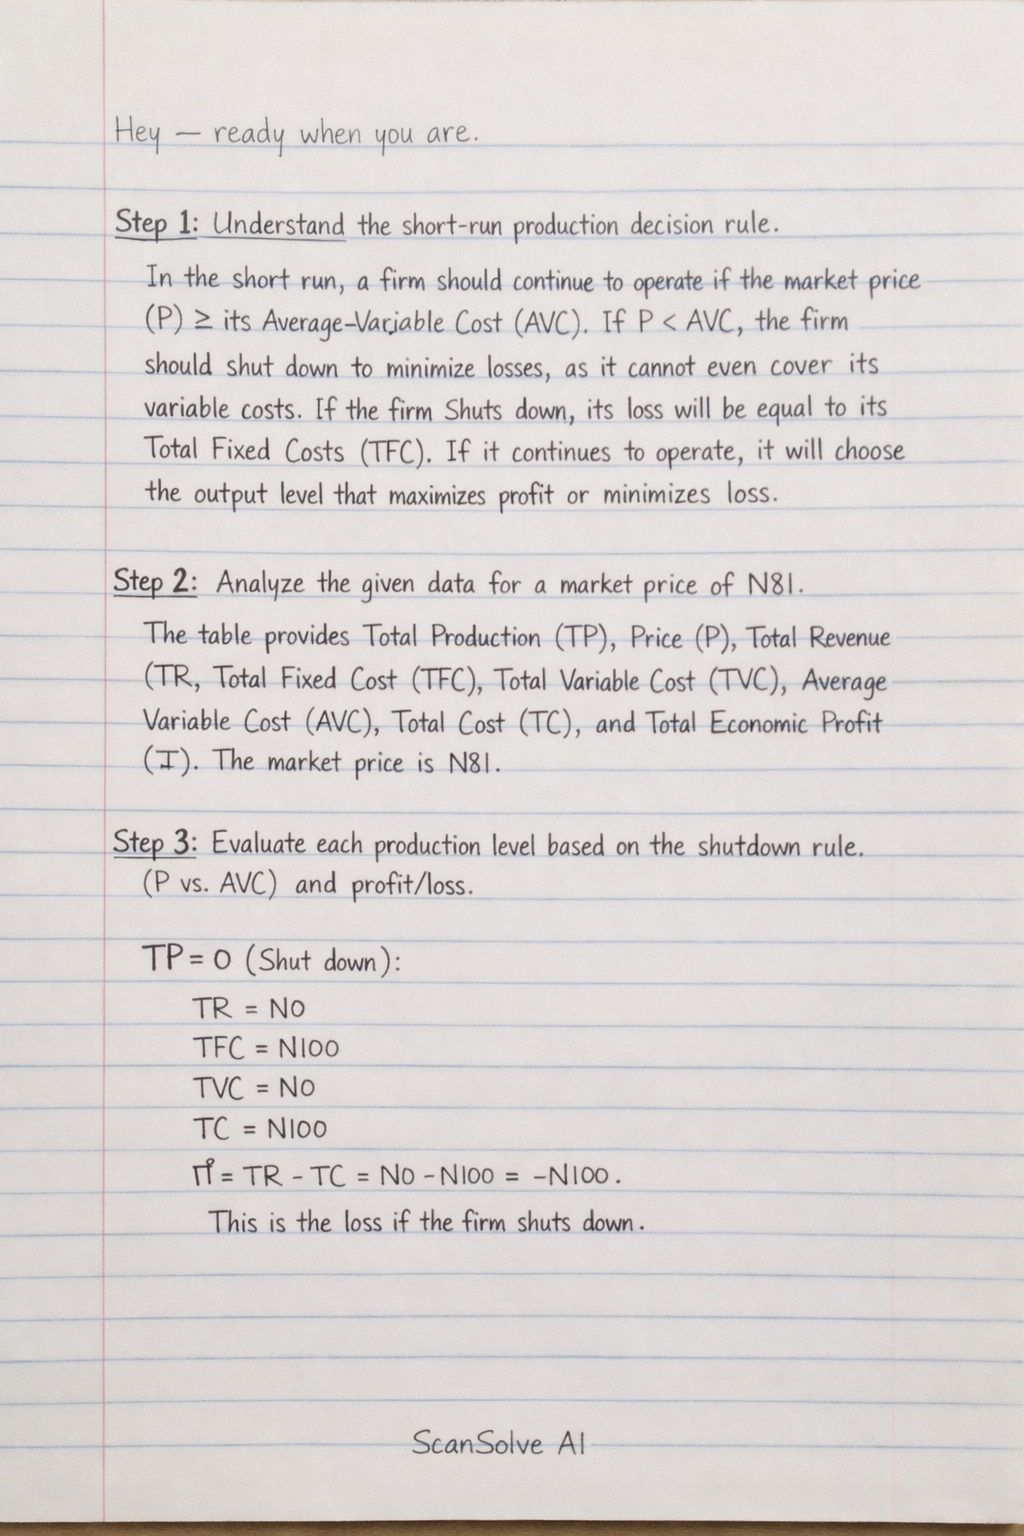 Hey — ready when you are.
Step 1: Understand the short-run production decision rule.
In the short run, a firm should continue to operate if the market price
(P) ≥ its Average-Variable Cost (AVC). If P < AVC, the firm
should shut down to minimize losses, as it cannot even cover its
variable costs. If the firm Shuts down, its loss will be equal to its
Total Fixed Costs (TFC). If it continues to operate, it will choose
the output level that maximizes profit or minimizes loss.
Step 2: Analyze the given data for a market price of N81.
The table provides Total Production (TP), Price (P), Total Revenue
(TR, Total Fixed Cost (TFC), Total Variable Cost (TVC), Average
Variable Cost (AVC), Total Cost (TC), and Total Economic Profit
(I). The market price is N81.
Step 3: Evaluate each production level based on the shutdown rule.
(P vs. AVC) and profit/loss.
TP = 0 (Shut down):
TR = N0
TFC = N100
TVC = N0
TC = N100
π = TR - TC = N0 - N100 = -N100.
This is the loss if the firm shuts down.
ScanSolve AI